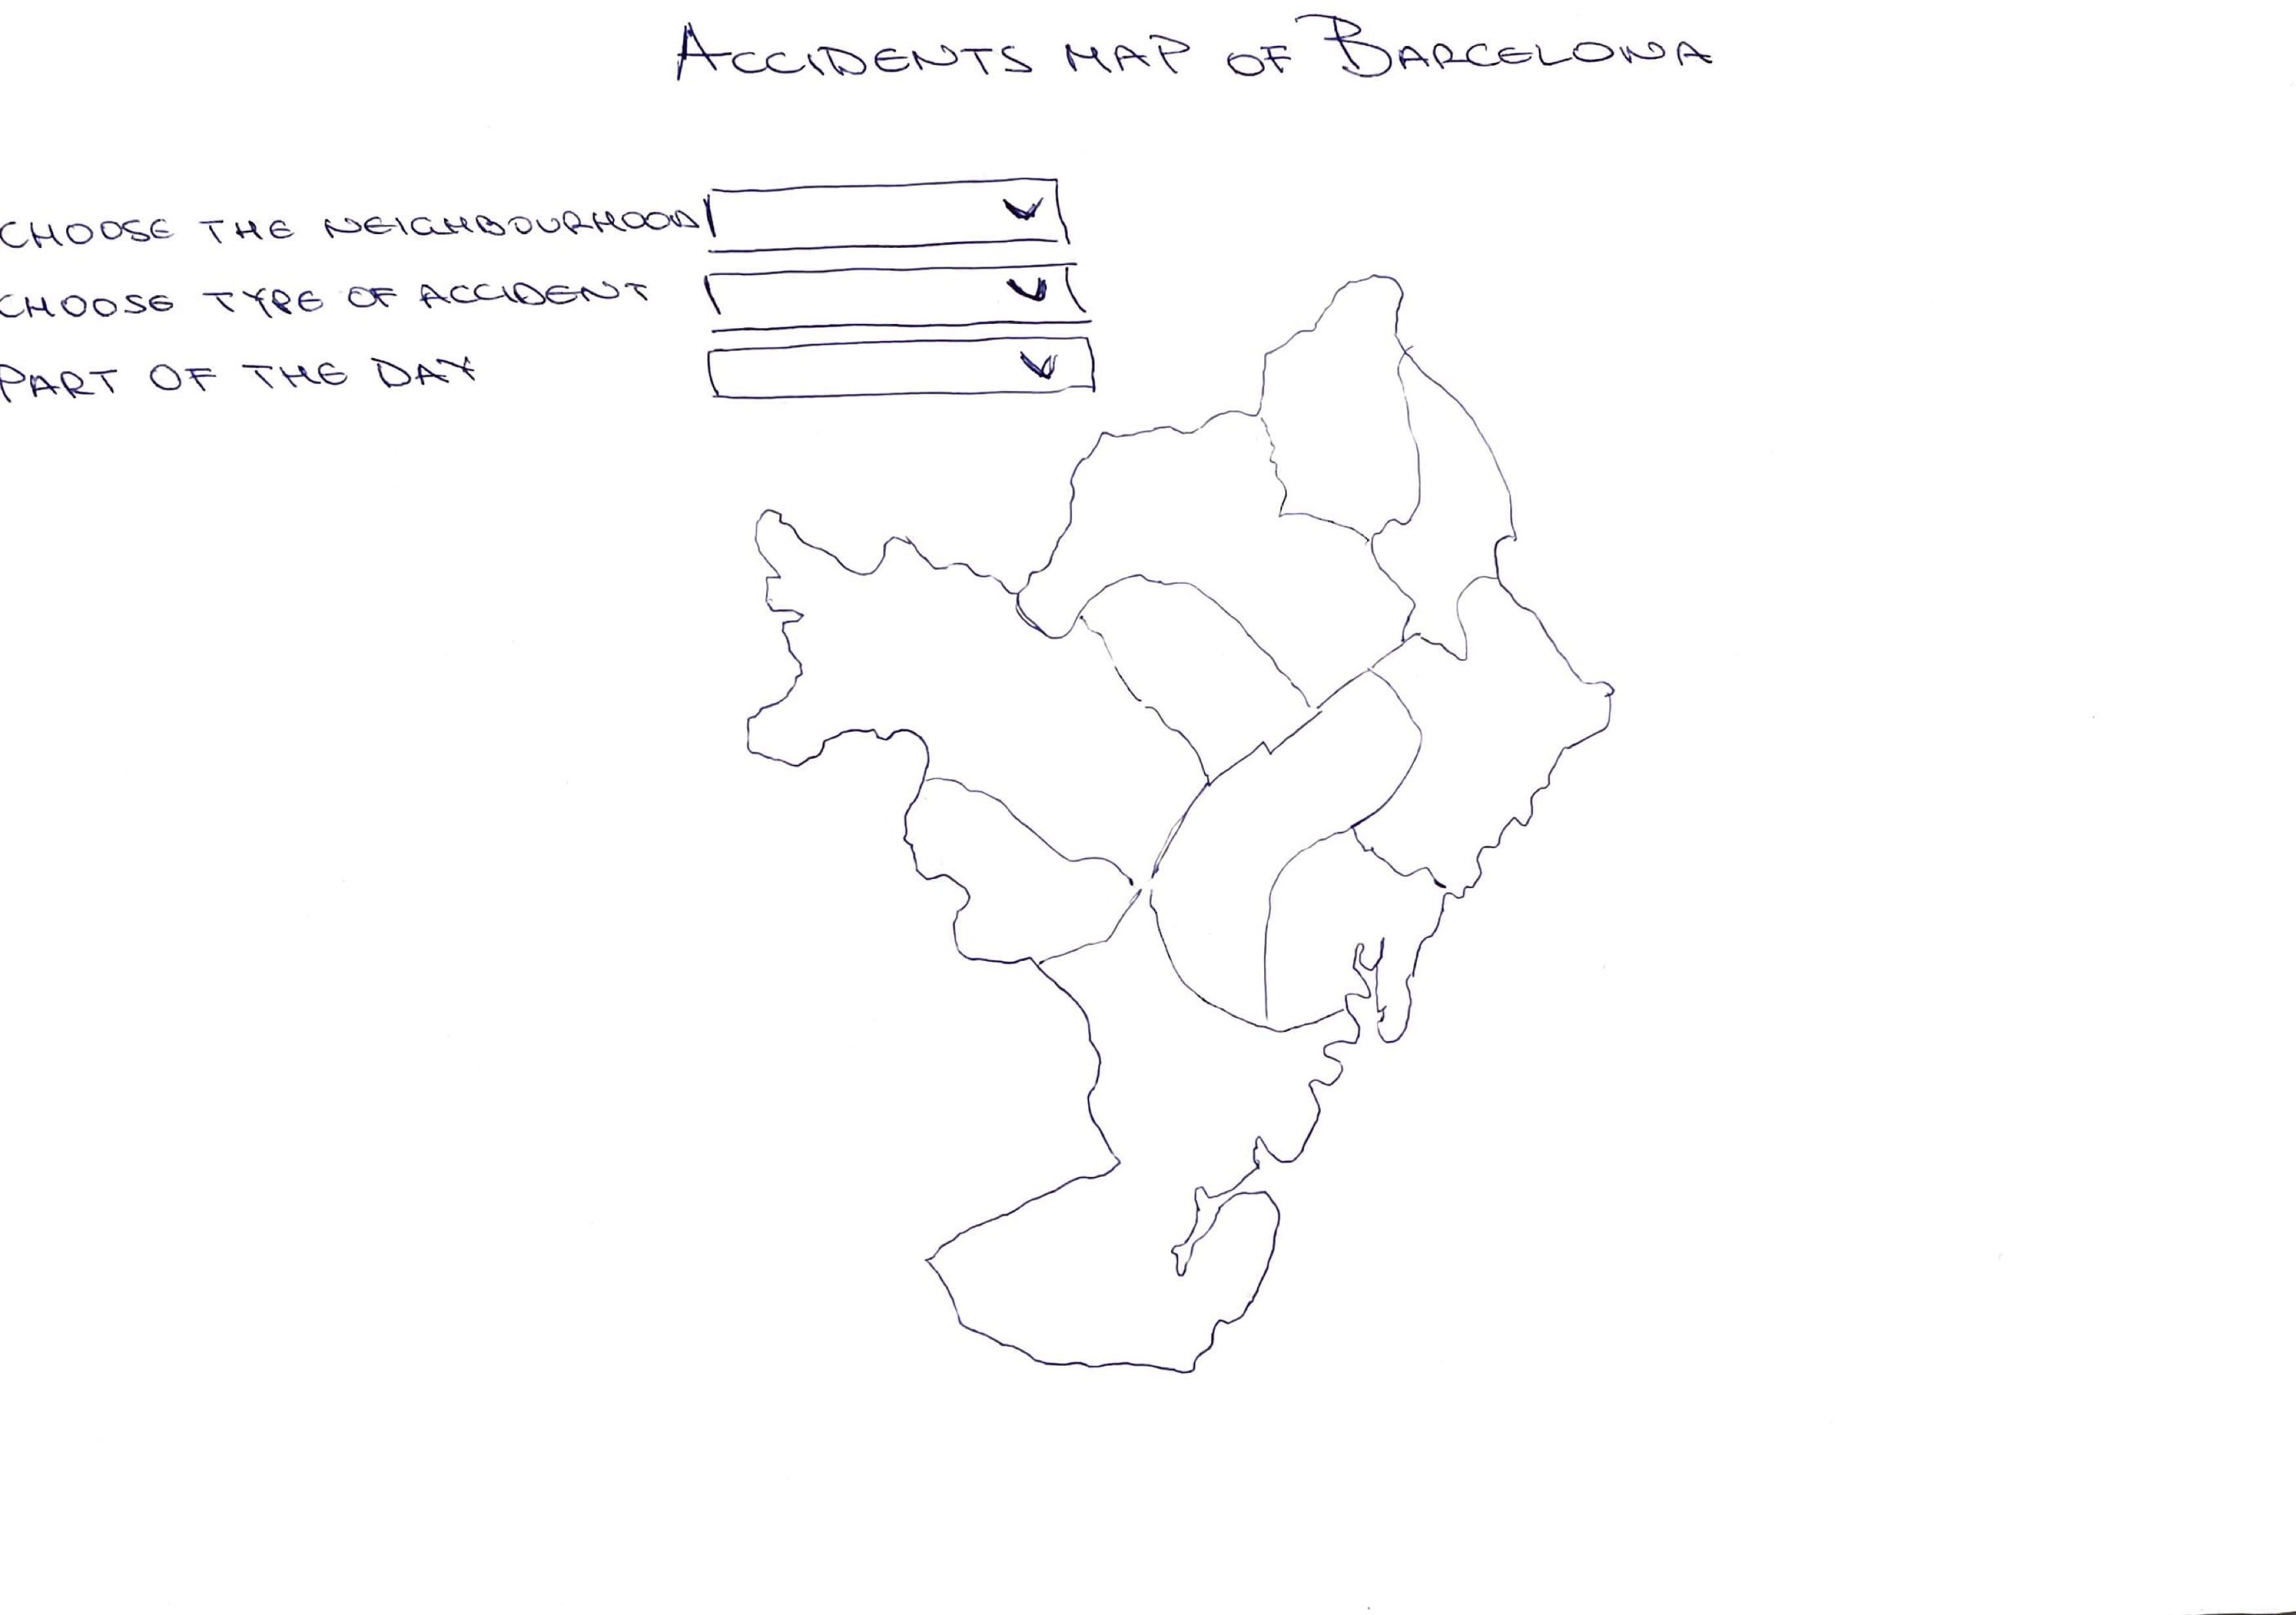 ACCIDENTS MAP OF BARCELONA
CHOOSE THE NEIGHBOURHOOD
CHOOSE TYPE OF ACCIDENT
PART OF THE DAY